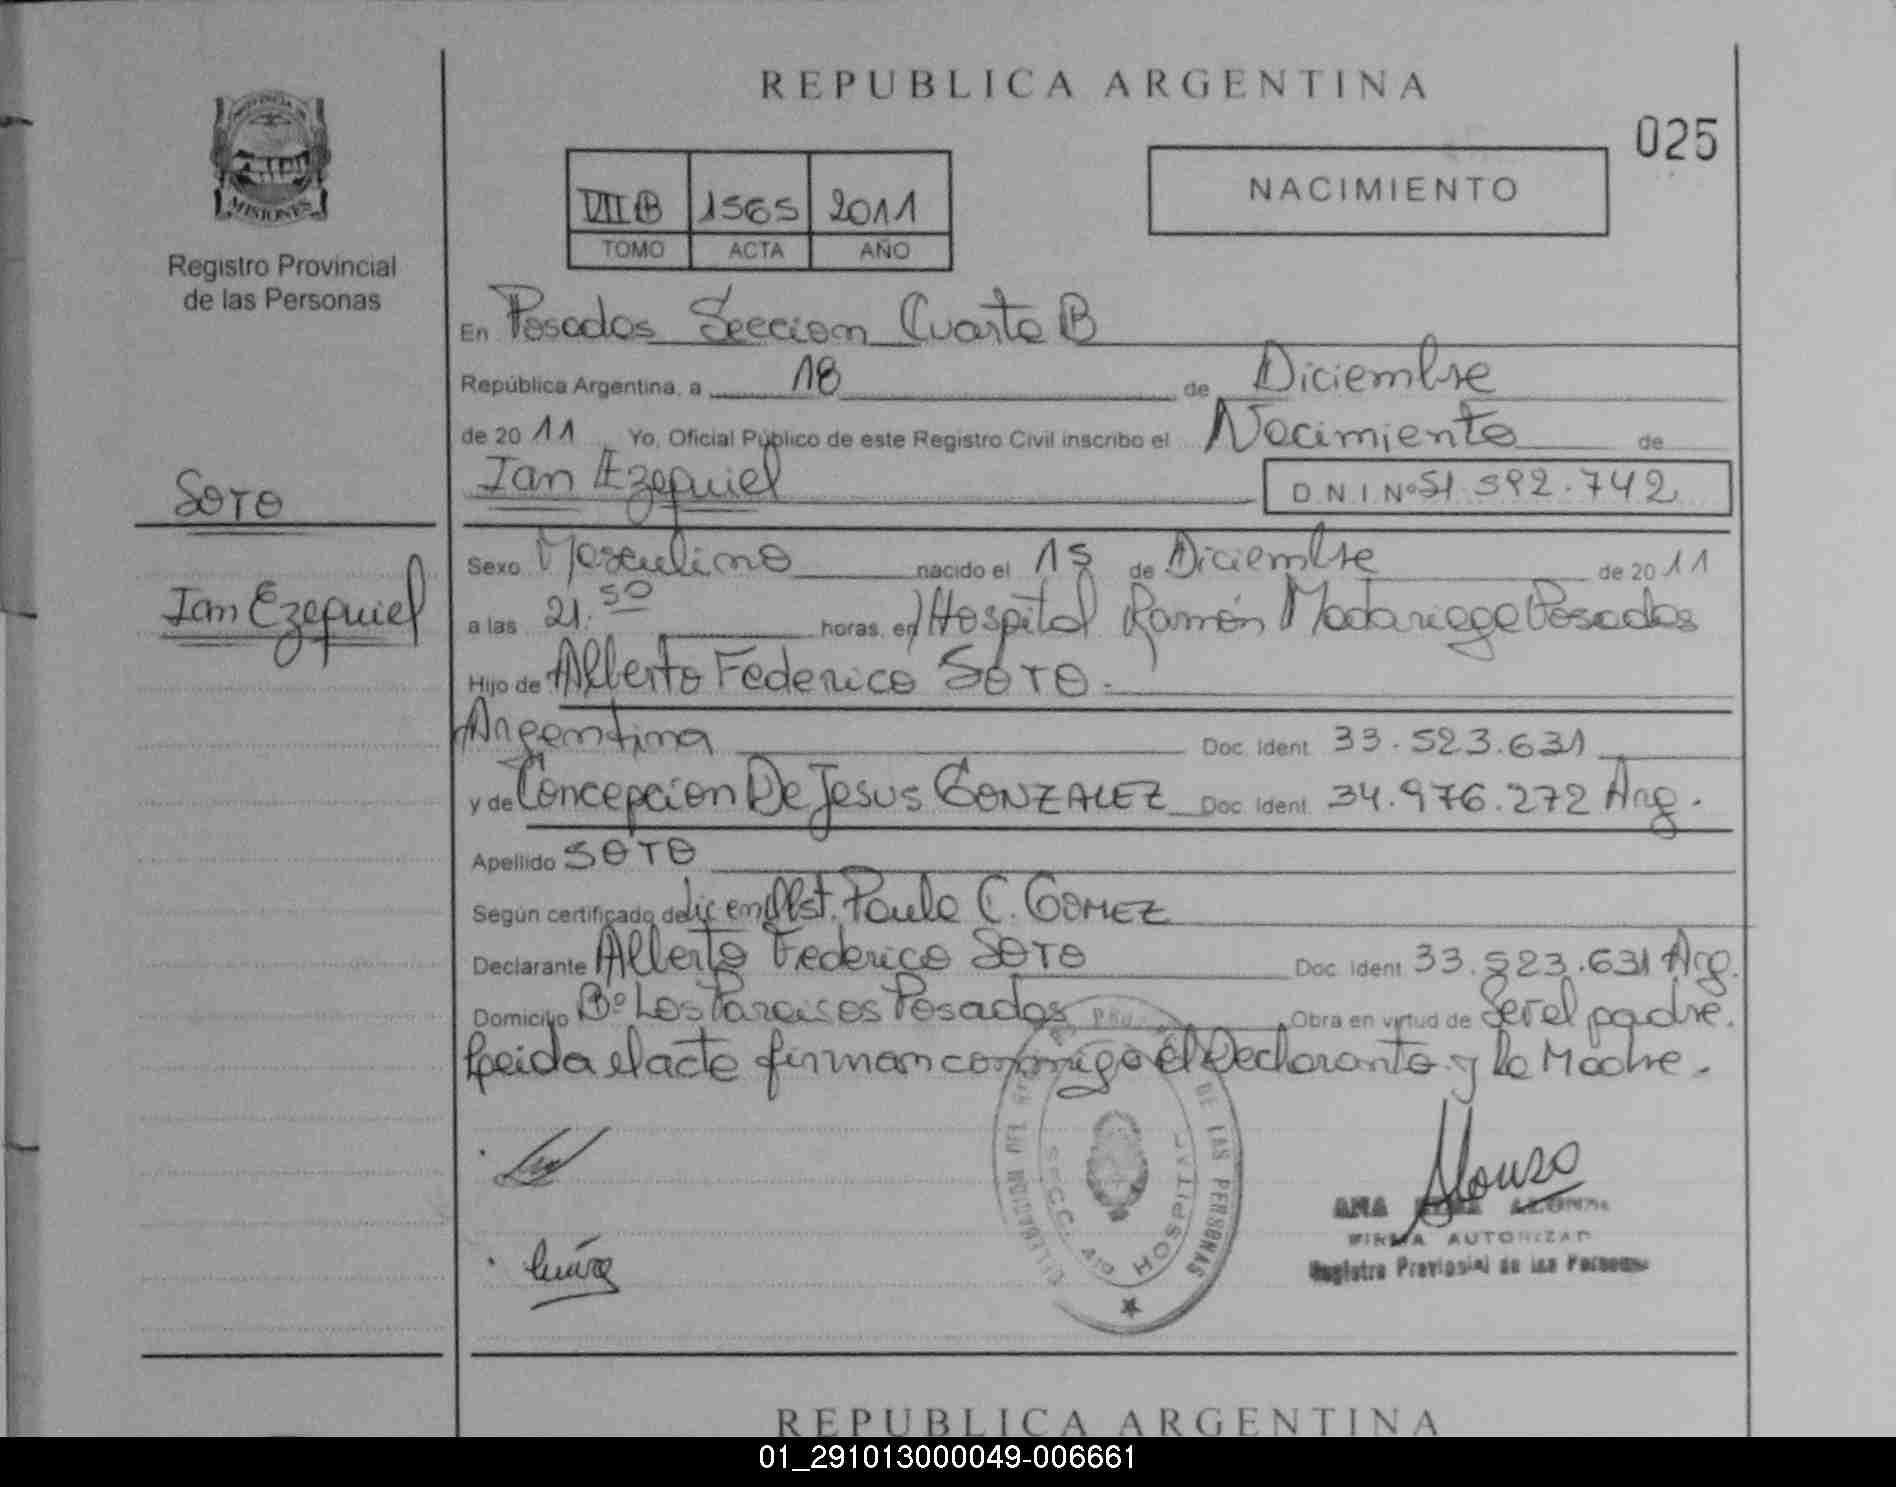 REPUBLICA ARGENTINA
025
NACIMIENTO
VII B 1565 2011
TOMO ACTA AÑO
MISIONES
Registro Provincial
de las Personas
En Posadas Seccion Cuarta B
República Argentina, a 18 de Diciembre
de 2011 Yo, Oficial Público de este Registro Civil inscribo el Nacimiento de
Ian Ezequiel D N I Nº 51.592.742
SOTO
Ian Ezequiel
Sexo Masculino nacido el 15 de Diciembre de 2011
a las 21.50 horas, en Hospital Ramón Madariaga Posadas
Hijo de Alberto Federico SOTO.
Argentina Doc. Ident. 33.523.631
y de Concepcion De Jesus GONZALEZ Doc. Ident. 34.976.272 Arg.
Apellido SOTO
Según certificado de Lic en Obst. Paula C. GOMEZ
Declarante Alberto Federico SOTO Doc. Ident. 33.523.631 Arg.
Domicilio Bº Los Paraisos Posadas Obra en virtud de Ser el padre.
Leida el acta firman conmigo el Declarante y la Madre.
DE LAS PERSONAS
HOSPITAL
SECC. 4ta
Alonso
ANA
FIRMA AUTORIZAD
Registro Provincial de las Personas
REPUBLICA ARGENTINA
01_291013000049-006661